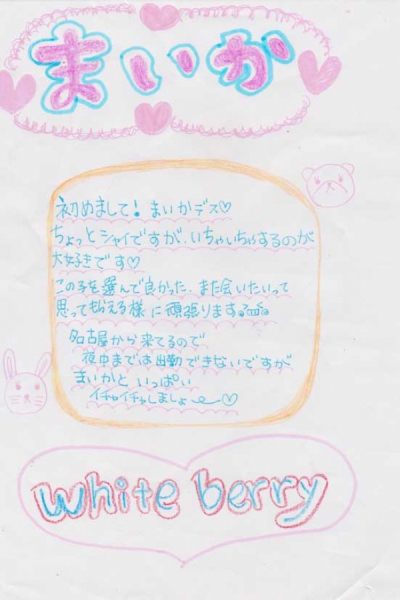 まいか
初めまして！まいかデス♡
ちょっとシャイですが、いちゃいちゃするのが
大好きです♡
この子を選んで良かった、また会いたいって
思ってもらえる様に頑張ります
名古屋から来てるので
夜中までは出勤できないですが
まいかと いっぱい
イチャイチャしましょ〜♡
white berry